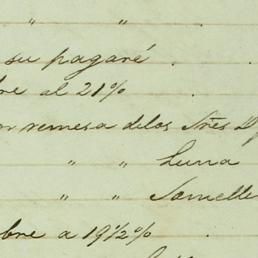 " "
su pagaré
re al 21%
n remesa de los Sres D
" " Luna
" " Tomelle
bre a 19 1/2%